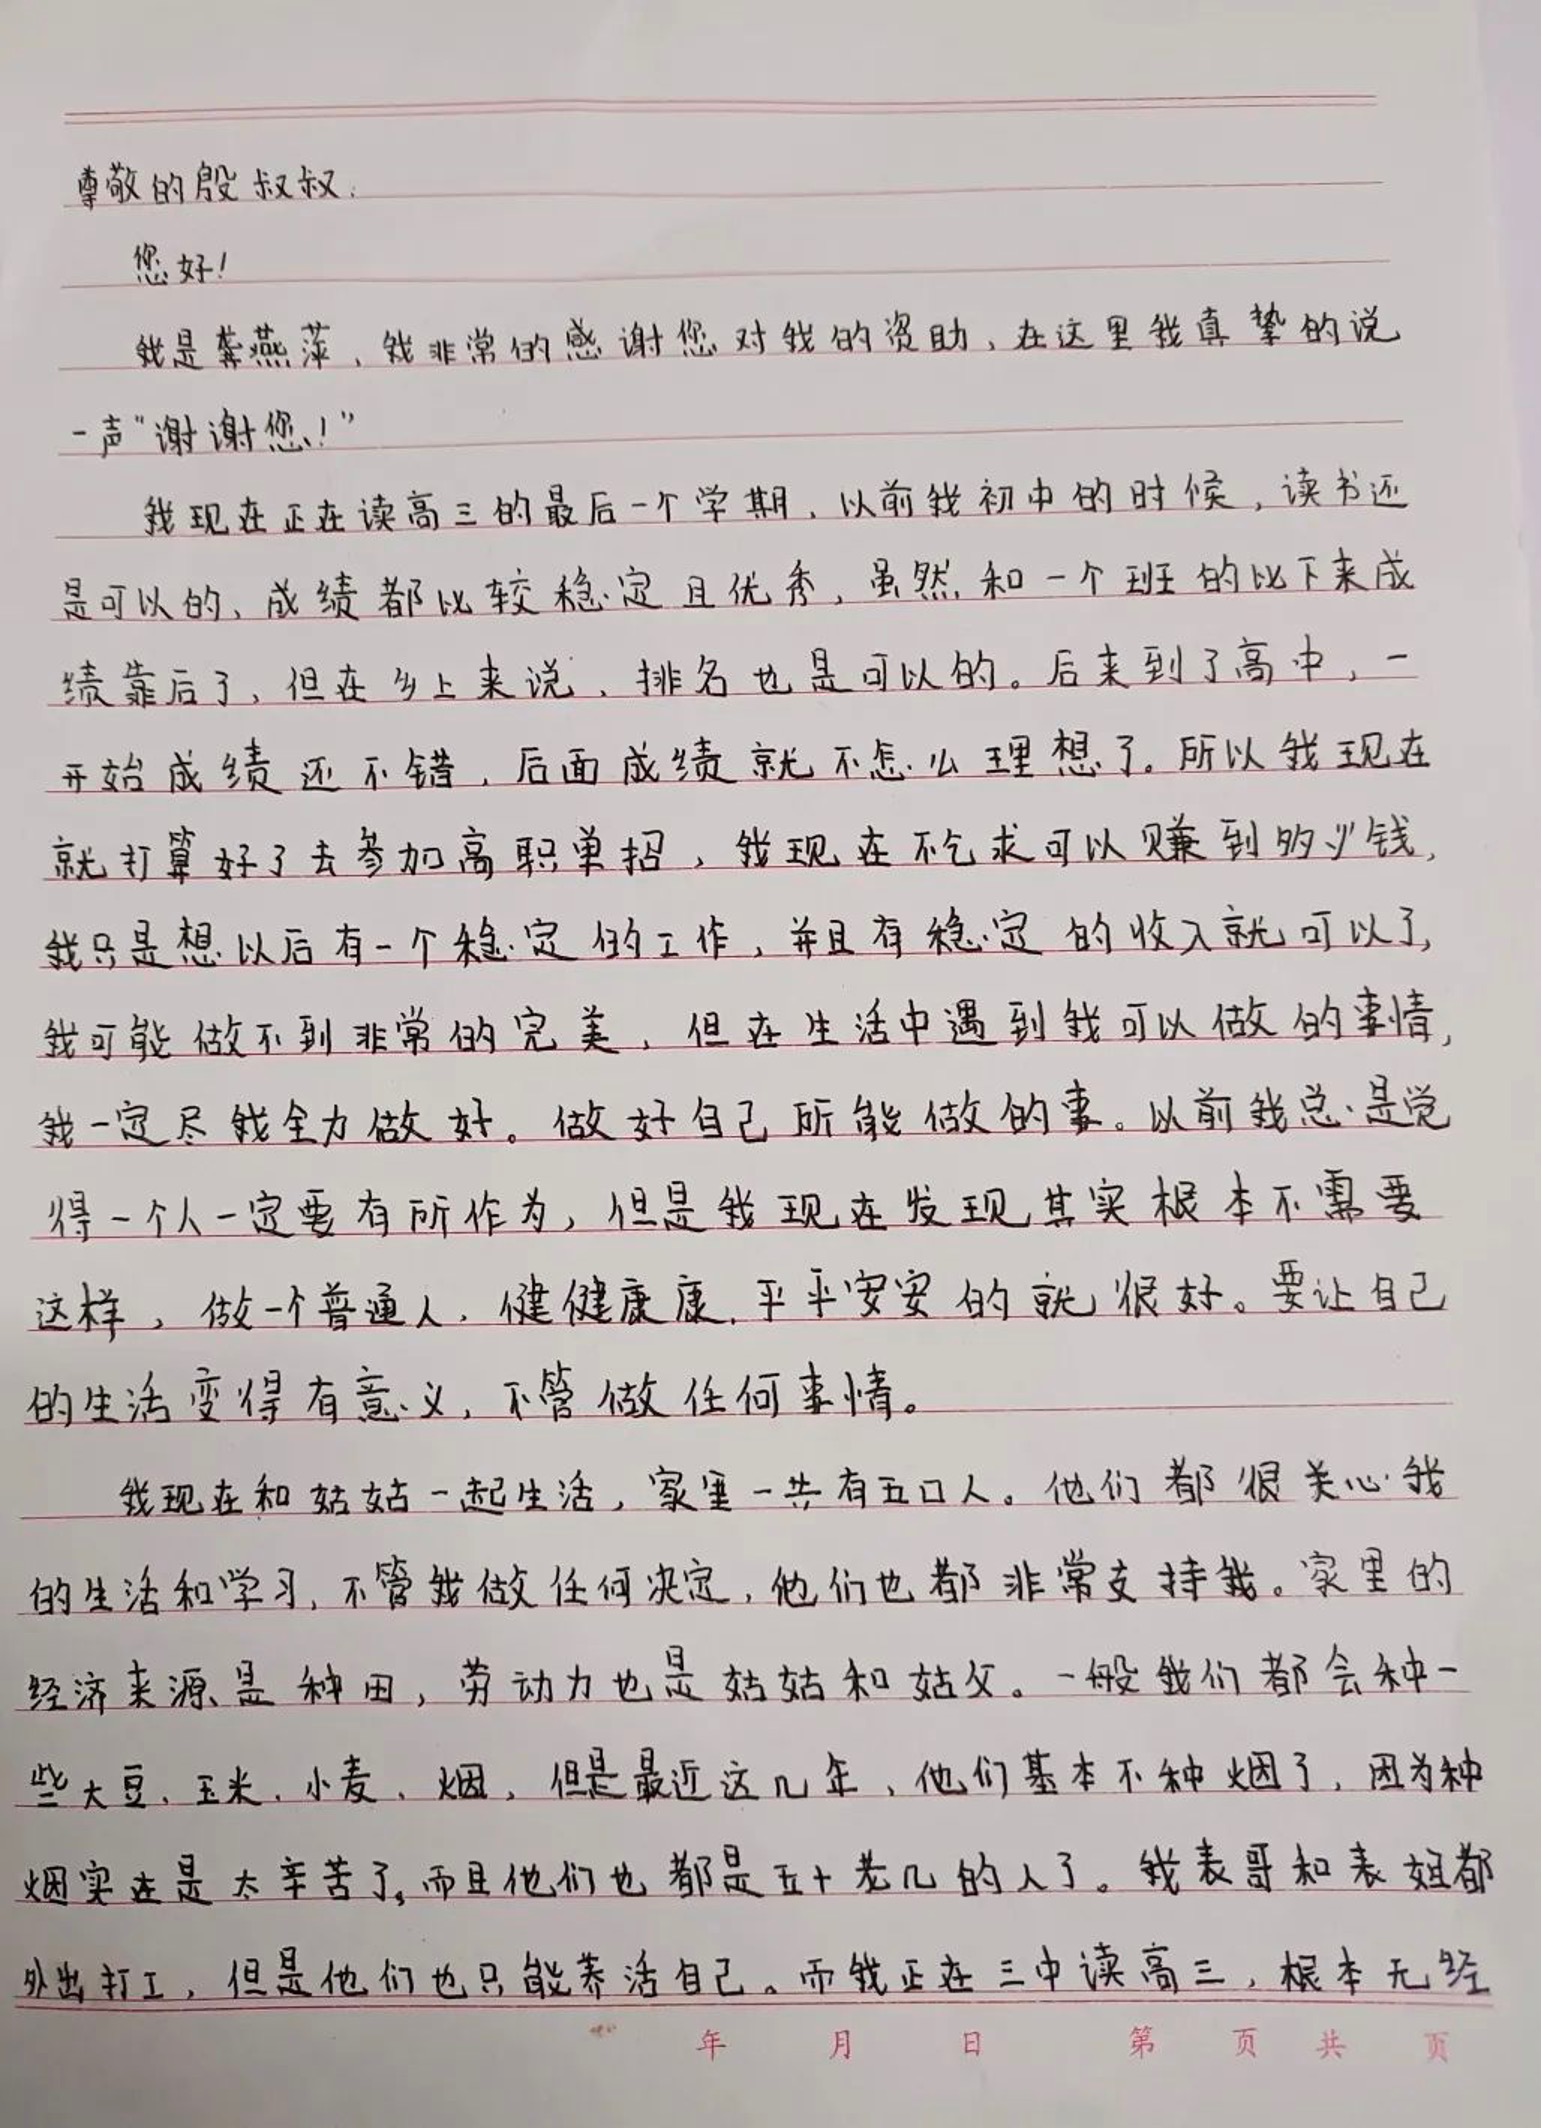 尊敬的殷叔叔:
您好!
我是龚燕萍，我非常的感谢您对我的资助，在这里我真挚的说
一声“谢谢您!”
我现在正在读高三的最后一个学期，以前我初中的时候，读书还
是可以的，成绩都比较稳定且优秀，虽然和一个班的比下来成
绩靠后了，但在乡上来说，排名也是可以的。后来到了高中，一
开始成绩还不错，后面成绩就不怎么理想了。所以我现在
就打算好了去参加高职单招，我现在不乞求可以赚到多少钱，
我只是想以后有一个稳定的工作，并且有稳定的收入就可以了，
我可能做不到非常的完美，但在生活中遇到我可以做的事情，
我一定尽我全力做好。做好自己所能做的事。以前我总是觉
得一个人一定要有所作为，但是我现在发现其实根本不需要
这样，做一个普通人，健健康康，平平安安的就很好。要让自己
的生活变得有意义，不管做任何事情。
我现在和姑姑一起生活，家里一共有五口人。他们都很关心我
的生活和学习，不管我做任何决定，他们也都非常支持我。家里的
经济来源是种田，劳动力也是姑姑和姑父。一般我们都会种一
些大豆、玉米、小麦、烟，但是最近这几年，他们基本不种烟了，因为种
烟实在是太辛苦了。而且他们也都是五十老几的人了。我表哥和表姐都
外出打工，但是他们也只能养活自己。而我正在三中读高三，根本无经
年 月 日 第 页 共 页